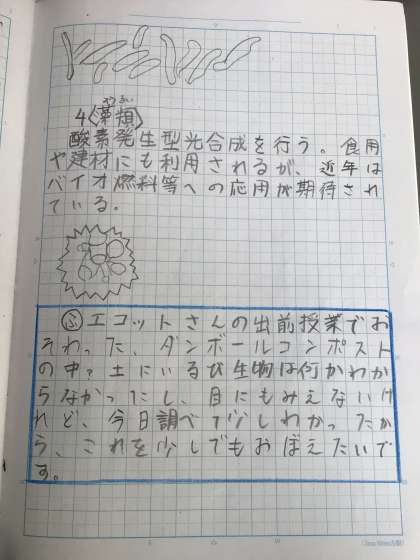 4〈藻類〉
酸素発生型光合成を行う。食用
や建材にも利用されるが、近年は
バイオ燃料等への応用が期待され
ている。
ふエコットさんの出前授業でお
そわった、ダンボールコンポスト
の中?土にいるび生物は何かわか
らなかったし、目にもみえないけ
れど、今日調べて少しわかったか
ら、これを少しでもおぼえたいで
す。